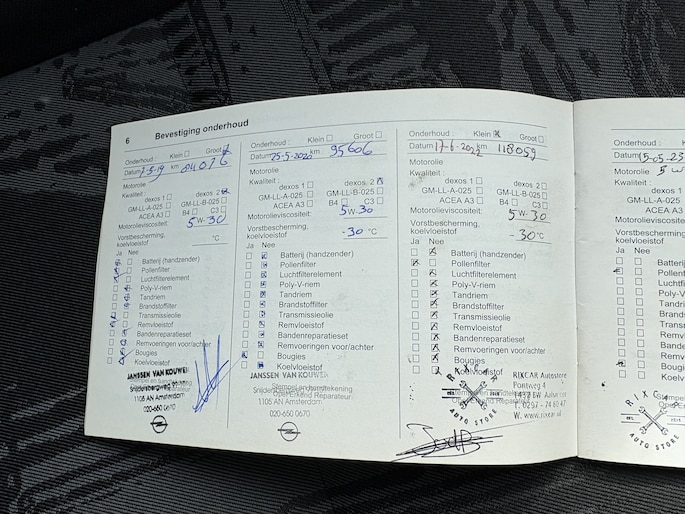 6 Bevestiging onderhoud
Onderhoud : Klein Groot
Datum km 84016
Motorolie
Kwaliteit : dexos 1 dexos 2
GM-LL-A-025 GM-LL-B-025
ACEA A3 B4 C3
Motorolieviscositeit: 5W-30
Vorstbescherming, koelvloeistof °C
Ja Nee
Batterij (handzender)
Pollenfilter
Luchtfilterelement
Poly-V-riem
Tandriem
Brandstoffilter
Transmissieolie
Remvloeistof
Bandenreparatieset
Remvoeringen voor/achter
Bougies
Koelvloeistof
JANSSEN VAN KOUWEN
1105 AN Amsterdam
020-650 0670
Onderhoud : Klein Groot
Datum 25-5-2020 km 95606
Motorolie
Kwaliteit : dexos 1 dexos 2
GM-LL-A-025 GM-LL-B-025
ACEA A3 B4 C3
Motorolieviscositeit: 5W-30
Vorstbescherming, koelvloeistof -30 °C
Ja Nee
Batterij (handzender)
Pollenfilter
Luchtfilterelement
Poly-V-riem
Tandriem
Brandstoffilter
Transmissieolie
Remvloeistof
Bandenreparatieset
Remvoeringen voor/achter
Bougies
Koelvloeistof
JANSSEN VAN KOUWEN
1105 AN Amsterdam
020-650 0670
Onderhoud : Klein Groot
Datum 17-6-2022 km 118059
Motorolie
Kwaliteit : dexos 1 dexos 2
GM-LL-A-025 GM-LL-B-025
ACEA A3 B4 C3
Motorolieviscositeit: 5W-30
Vorstbescherming, koelvloeistof -30°C
Ja Nee
Batterij (handzender)
Pollenfilter
Luchtfilterelement
Poly-V-riem
Tandriem
Brandstoffilter
Transmissieolie
Remvloeistof
Bandenreparatieset
Remvoeringen voor/achter
Bougies
Koelvloeistof
RIXCAR
AUTO STORE
RIXCAR Autostore
Pontweg 4
W. www.rixcar.nl
Onderhoud :
Datum
Motorolie
Kwaliteit :
GM-LL-A-
ACEA
Motorolievisco
Vorstbescherming, koelvloeistof
Ja Nee
Batteri
Pollen
Luchtf
Poly-V
Tandri
Brands
Trans
Remv
Bande
Remv
Bougi
Koelv
RIXCAR
AUTO STORE